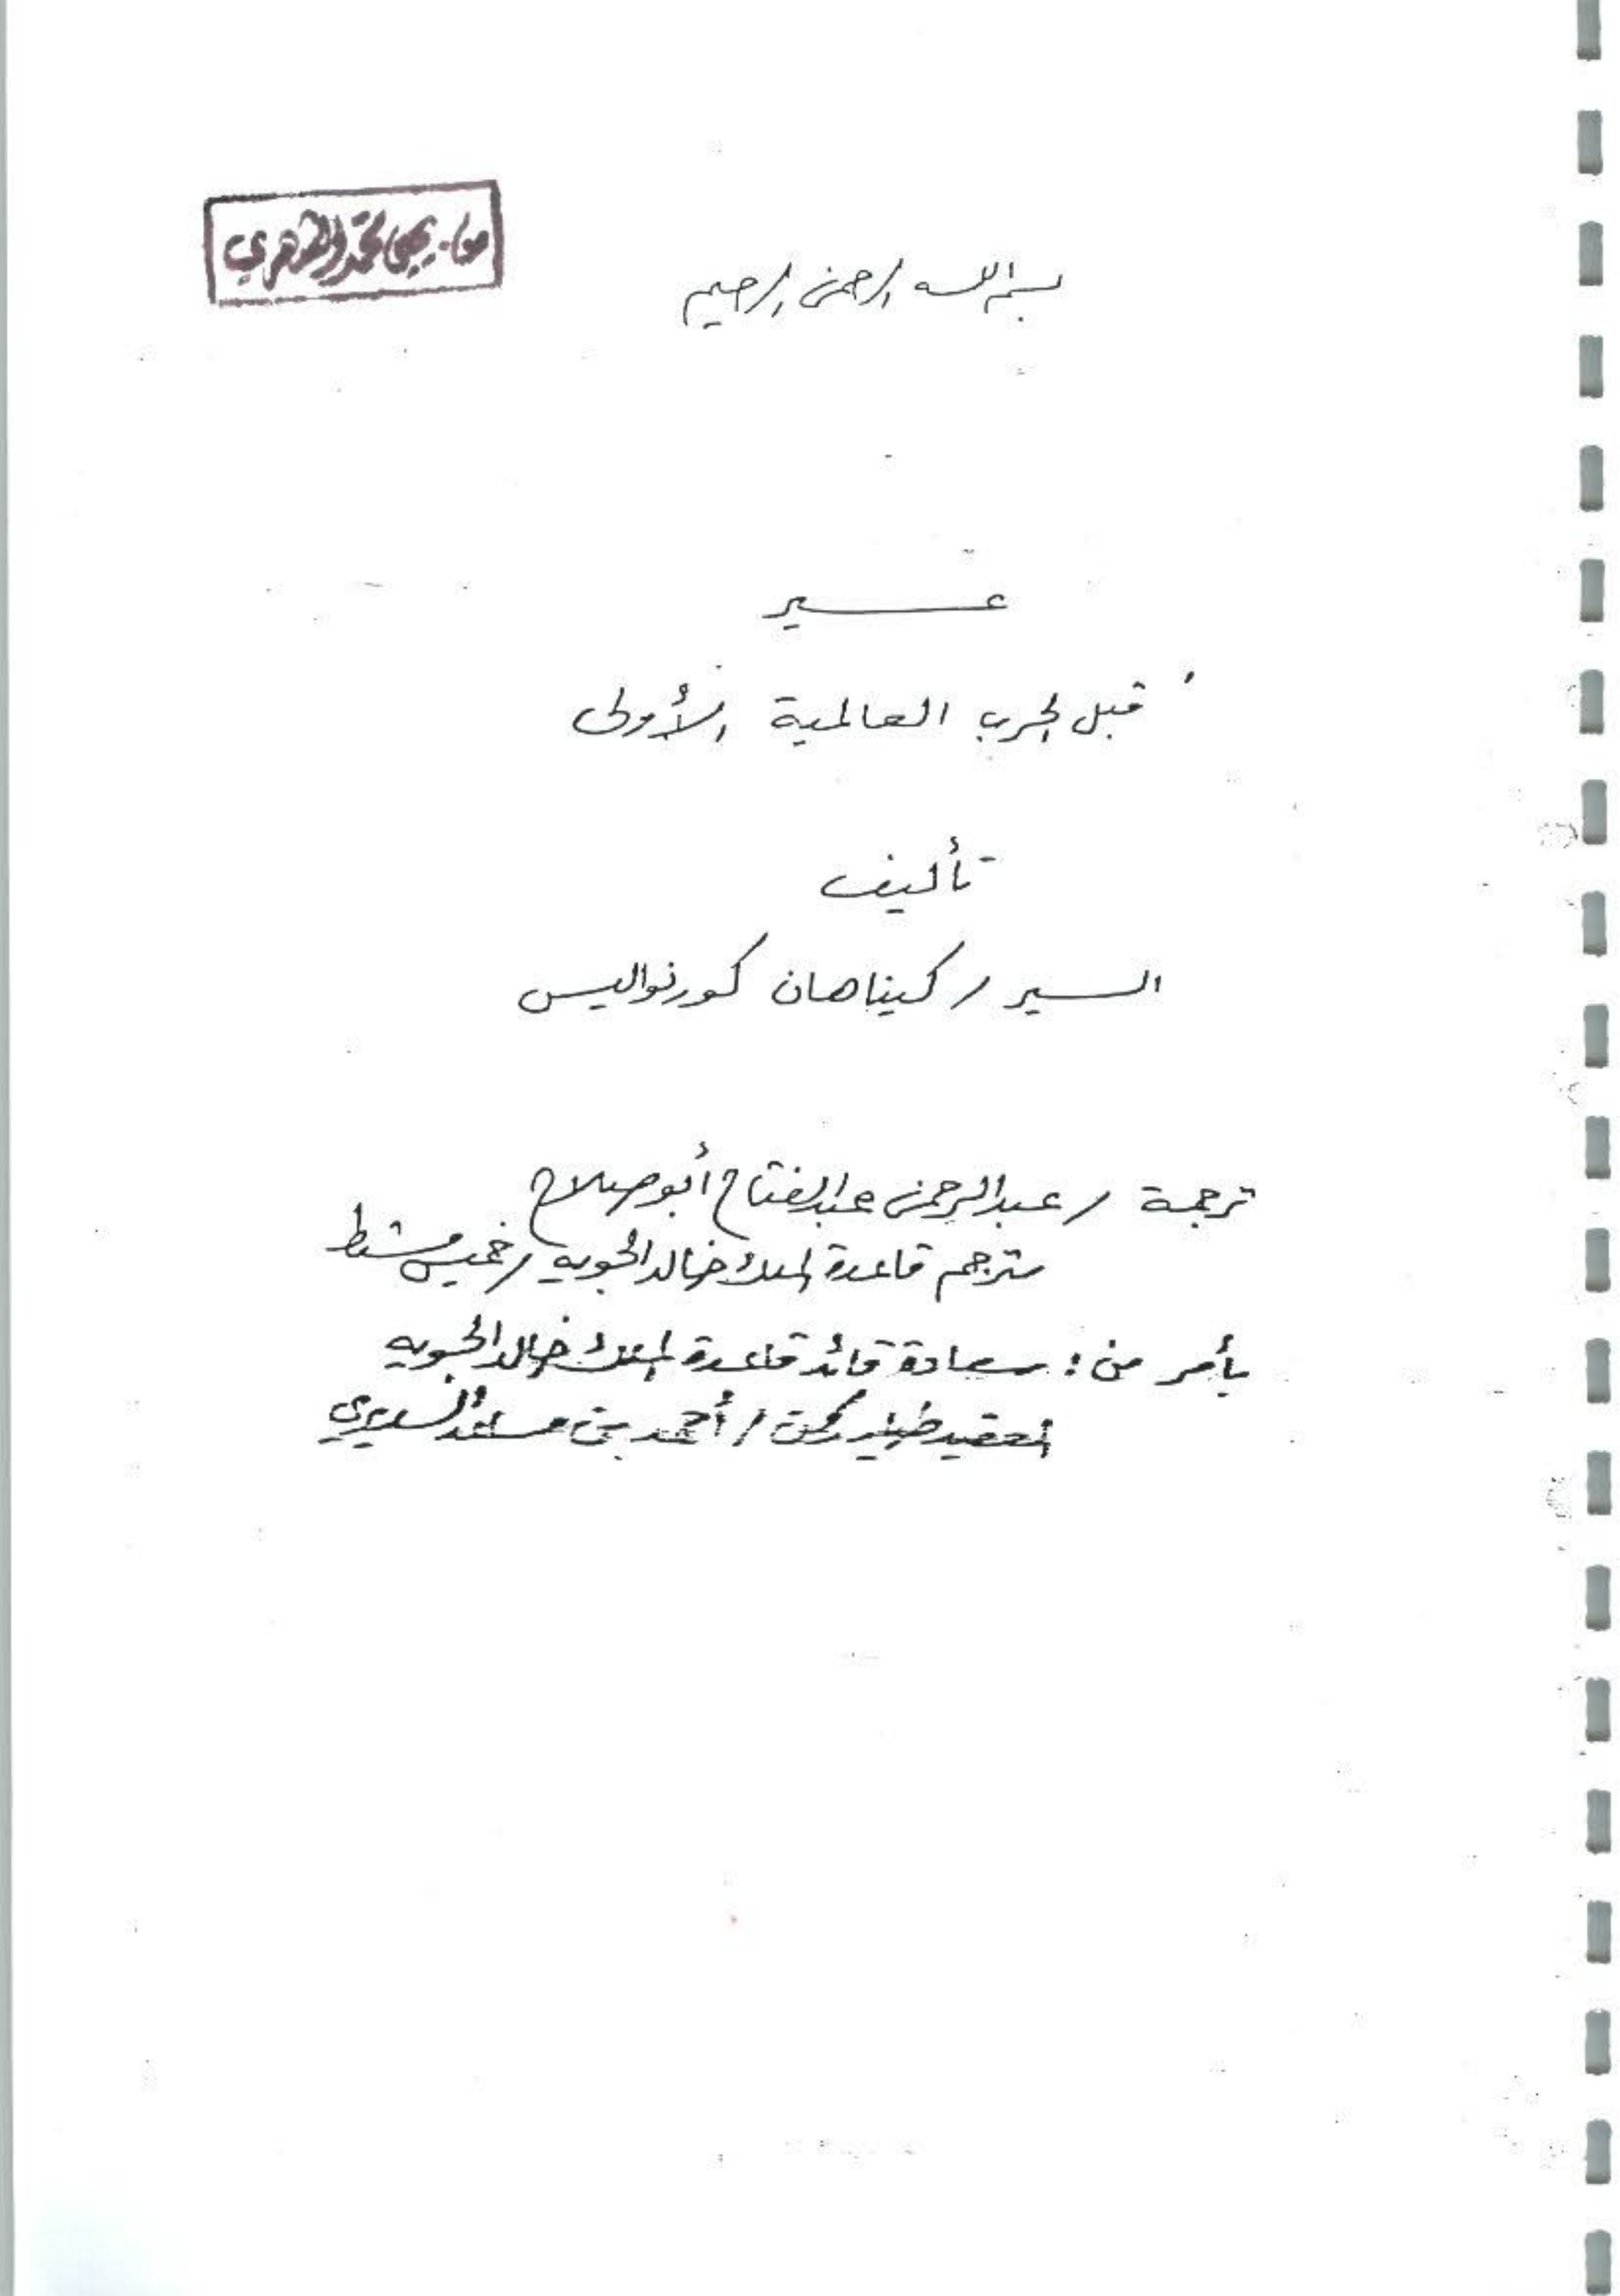 بسم الله الرحمن الرحيم
عسير
قبل الحرب العالمية الأولى
تأليف
السير / كيناهان كورنواليس
ترجمة / عبدالرحمن عبدالفتاح أبو صلاح
مترجم قاعدة الملك خالد الجويه / خميس مشيط
بأمر من : سعادة قائد قاعدة الملك خالد الجويه
العقيد طيار ركن / أحمد بن مساعد السديري